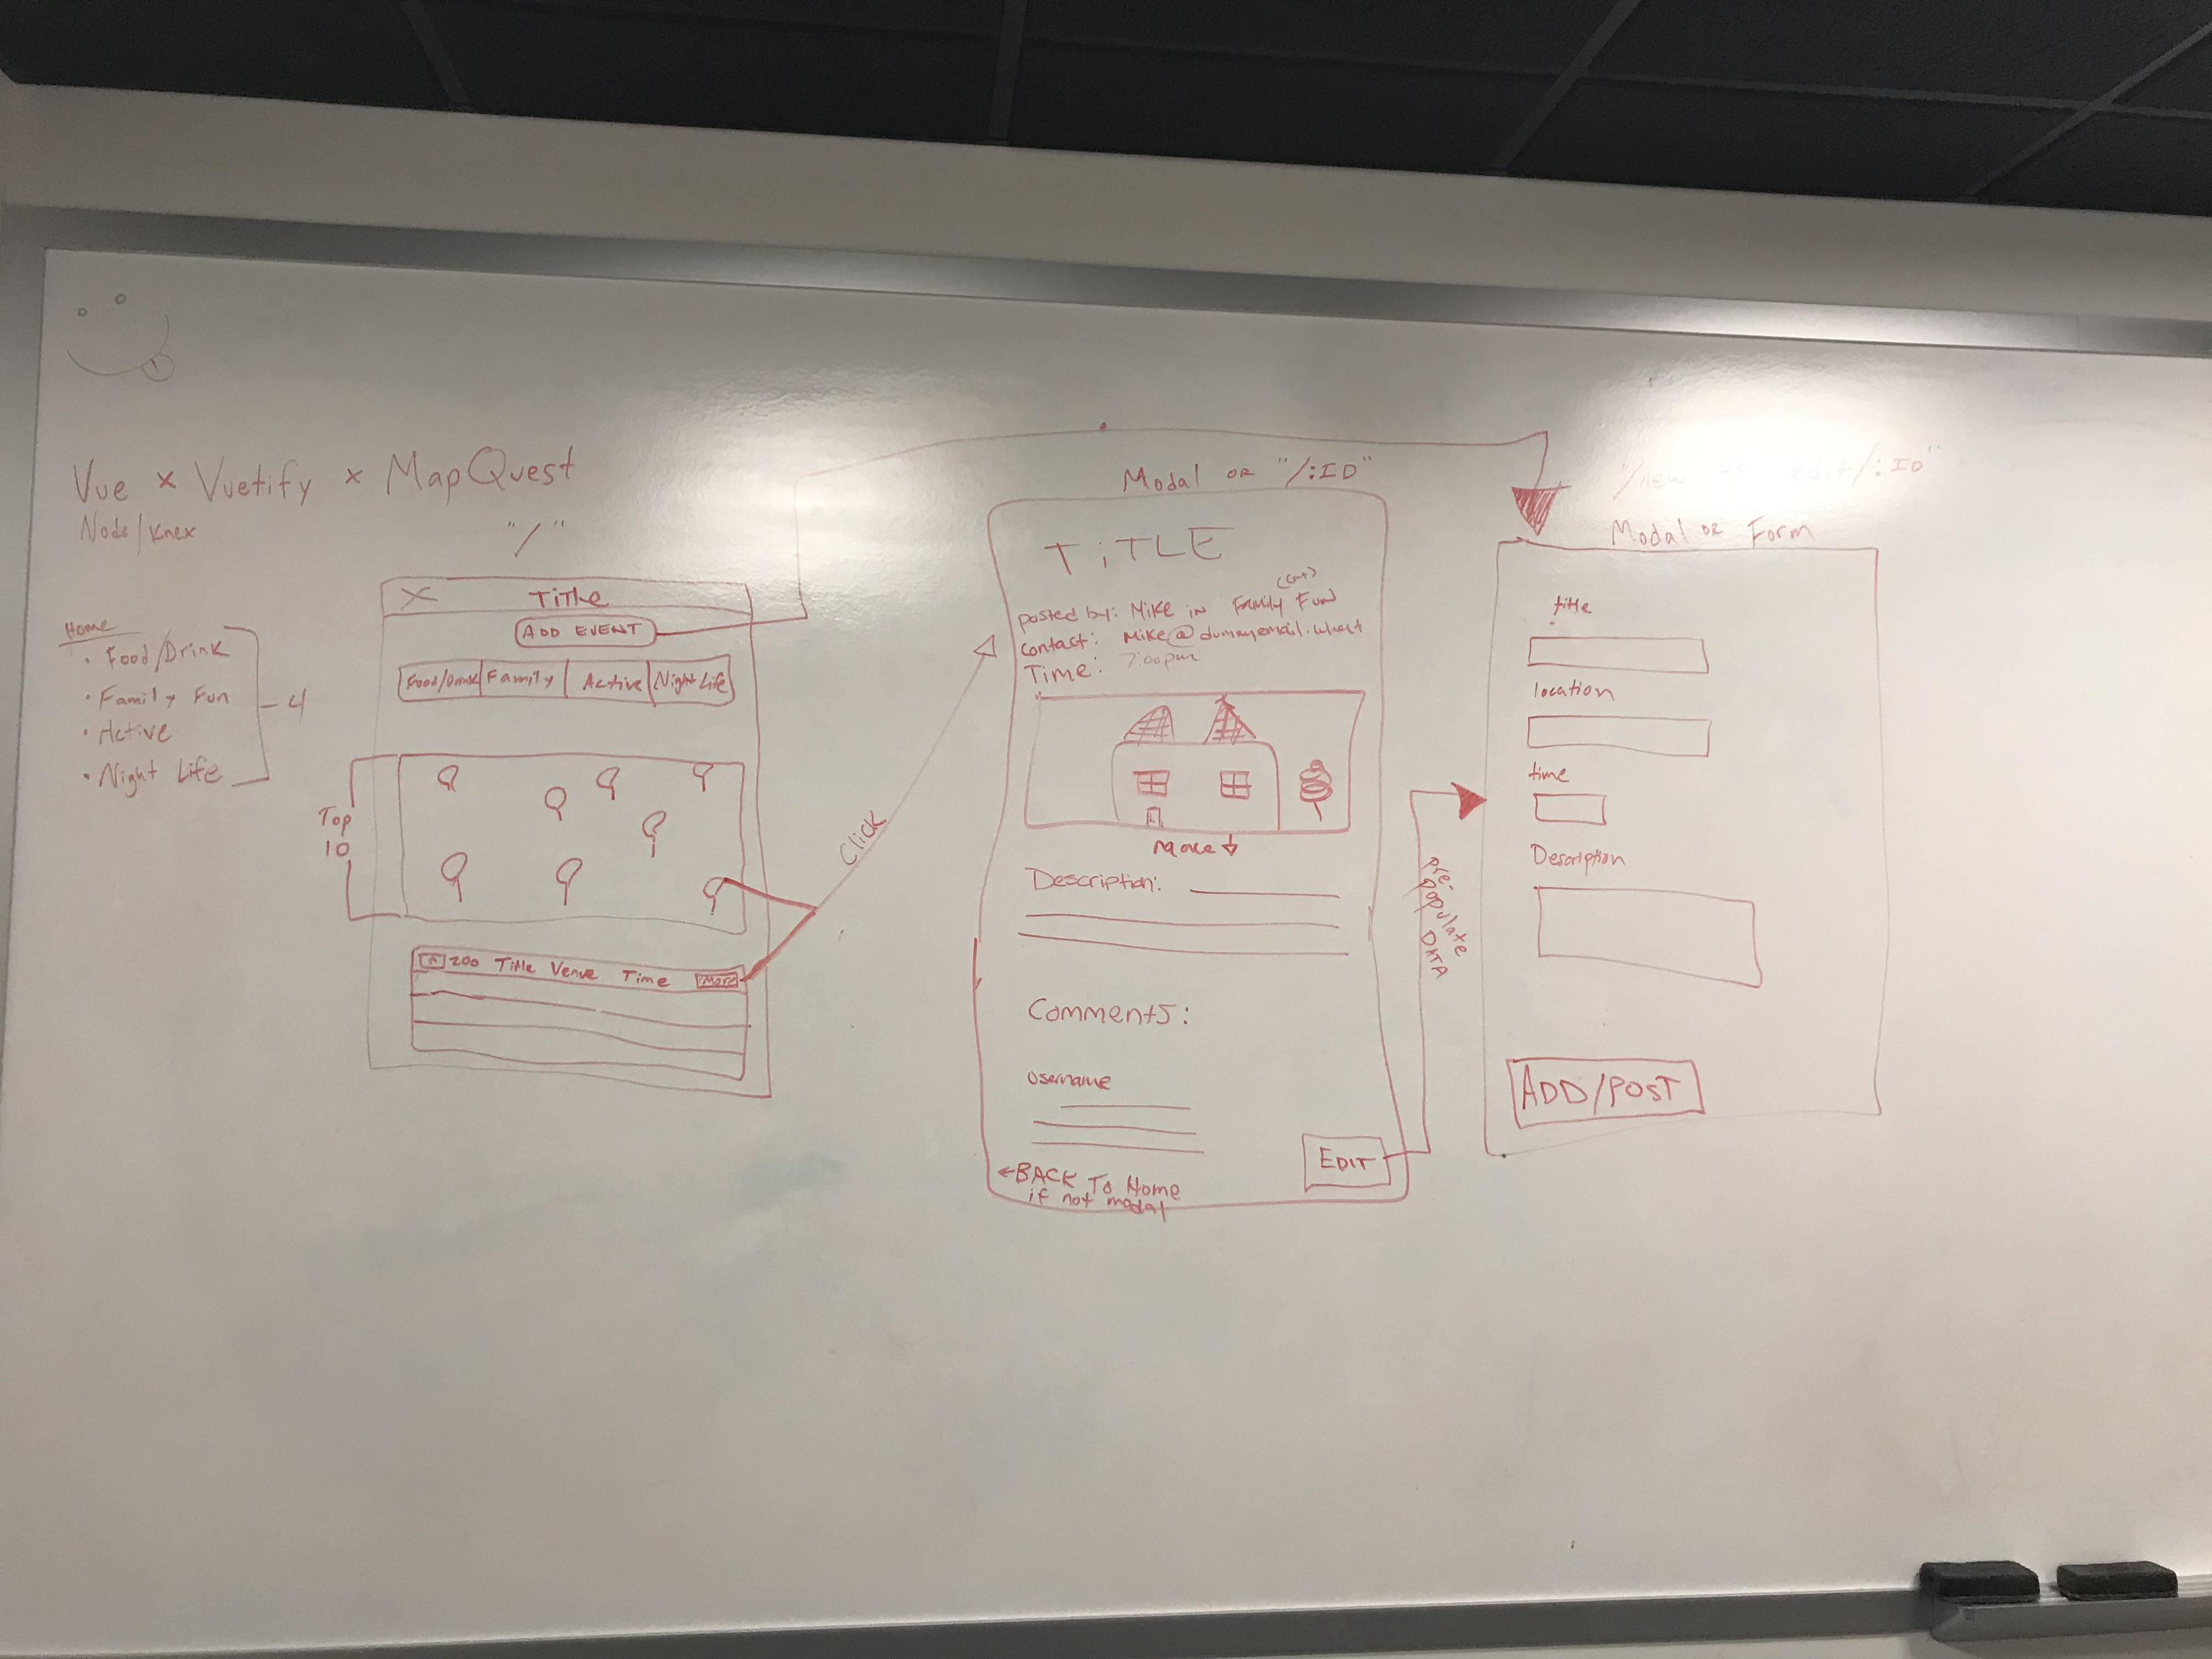 Vue x Vuetify x MapQuest
Node/Knex
Home
• Food/Drink
• Family Fun
• Active
• Night Life
4
"/"
X Title
ADD EVENT
Food/Drink Family Active Night Life
Top
10
200 Title Venue Time More
Click
Modal OR "/:ID"
TiTLE
(Cat)
posted by: Mike in Family Fun
contact: Mike@dummyemail.what
Time: 7:00pm
More ↓
Description:
Comments:
Username
←BACK To Home
if not modal
EDIT
pre-
populate
DATA
"/new or edit/:ID"
Modal OR Form
title
location
time
Description
ADD/POST